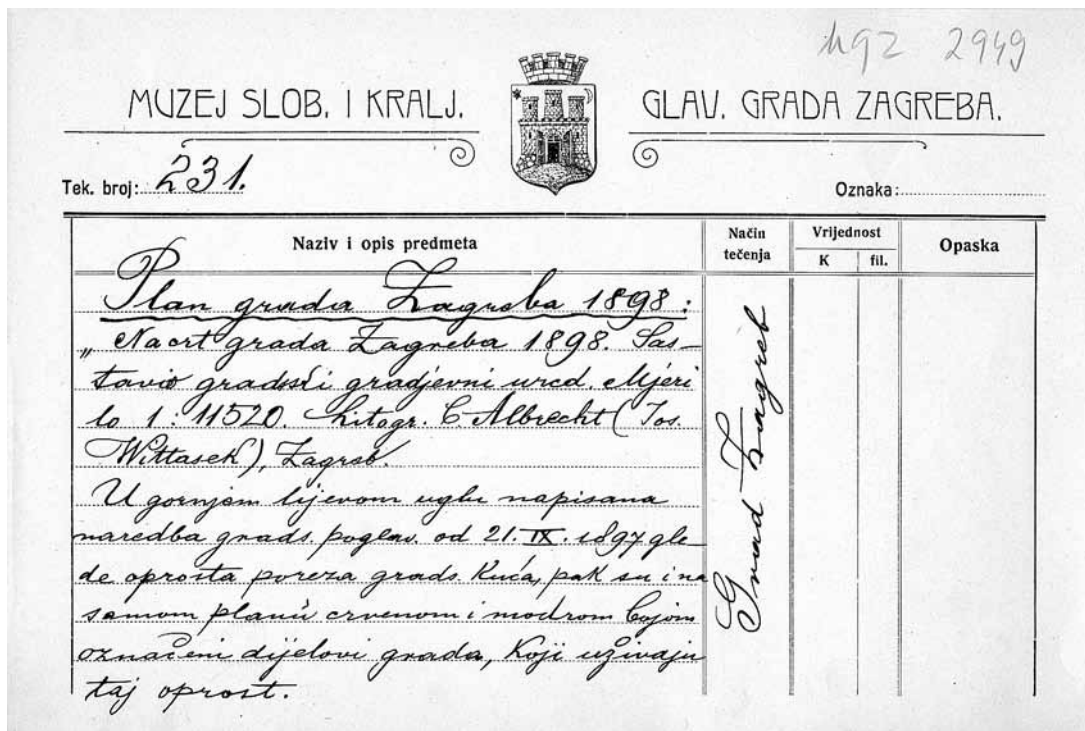 mgz 2949
MUZEJ SLOB. I KRALJ. GLAV. GRADA ZAGREBA.
Tek. broj: 231.
Oznaka:
Naziv i opis predmeta
Način tečenja
Vrijednost
K fil.
Opaska
Plan grada Zagreba 1898:
„Nacrt grada Zagreba 1898. Sas-
tavio gradski gradjevni ured. Mjeri
lo 1:11520. Litogr. C. Albrecht (Jos.
Wittasek), Zagreb.
U gornjem lijevom uglu napisana
naredba grads. poglav. od 21. IX. 1897 gle-
de oprosta poreza grads. kuća, pak su i na
samom planu crvenom i modrom bojom
označeni dijelovi grada, koji uživaju
taj oprost.
Grad Zagreb